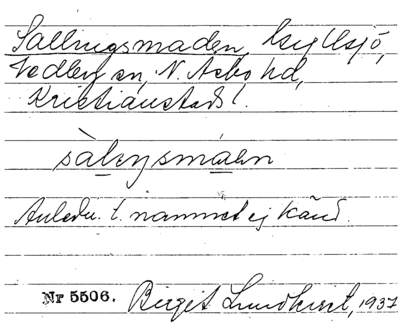 Sällingsmaden, lxg Ilsjö,
Vedby sn, N. Åsbo hd,
Kristianstads l.
sàleŋsmáen
Anledn. t. namnet ej känd.
Nr 5506. Birgit Lundkvist, 1937